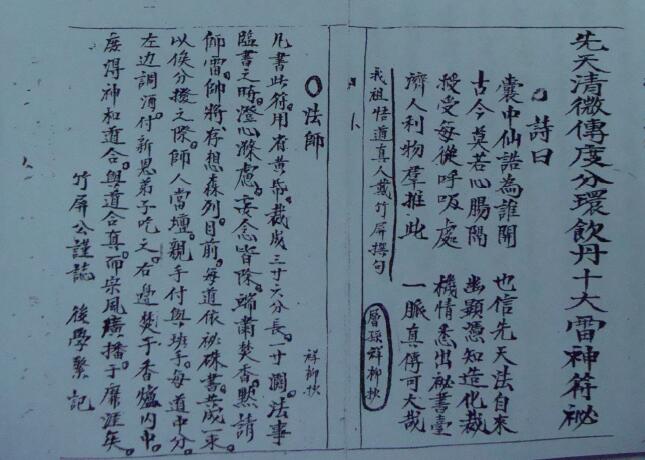 先天清微傳度分環飲丹十大雷神符祕
詩曰
囊中仙誥為誰開　也信先天法自來
古今莫若心腸隔　幽顯憑知造化裁
授受每從呼吸處　機情悉出祕書臺
濟人利物羣推此　一脈真傳可大哉
我祖悟道真人戴竹屏撰句　層孫祥柳抄
法師　祥柳抄
凡書此符用省黃帋裁成三寸六分長一寸濶法事
臨書之時澄心滌慮妄念皆除端肅焚香黙請
師雷帥將存想森列目前每道依祕硃書共成一束
以俟分撥之際師人當壇親手付與班手每道中分
左边調酒付新恩弟子吃之右邊焚于香爐內中
庶得神和道合與道合真而宗風廣播于靡涯矣
竹屏公謹誌　後學擊記